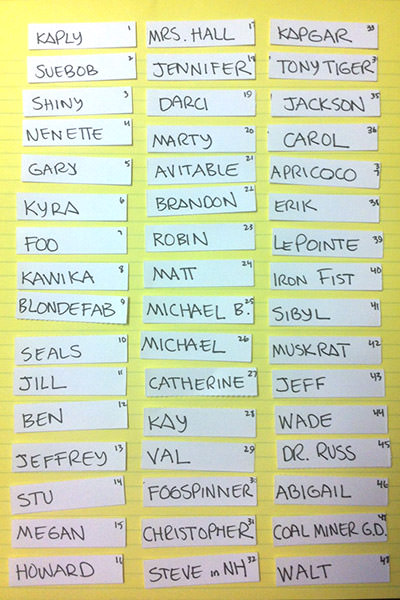 KAPLY 1
SUEBOB 2
SHINY 3
NENETTE 4
GARY 5
KYRA 6
FOO 7
KAWIKA 8
BLONDEFAB 9
SEALS 10
JILL 11
BEN 12
JEFFREY 13
STU 14
MEGAN 15
HOWARD 16
MRS. HALL 17
JENNIFER 18
DARCI 19
MARTY 20
AVITABLE 21
BRANDON 22
ROBIN 23
MATT 24
MICHAEL B. 25
MICHAEL 26
CATHERINE 27
KAY 28
VAL 29
FOGSPINNER 30
CHRISTOPHER 31
STEVE in NH 32
KAPGAR 33
TONY TIGER 34
JACKSON 35
CAROL 36
APRICOCO 37
ERIK 38
LEPOINTE 39
IRON FIST 40
SIBYL 41
MUSKRAT 42
JEFF 43
WADE 44
DR. RUSS 45
ABIGAIL 46
COAL MINER G.D. 47
WALT 48